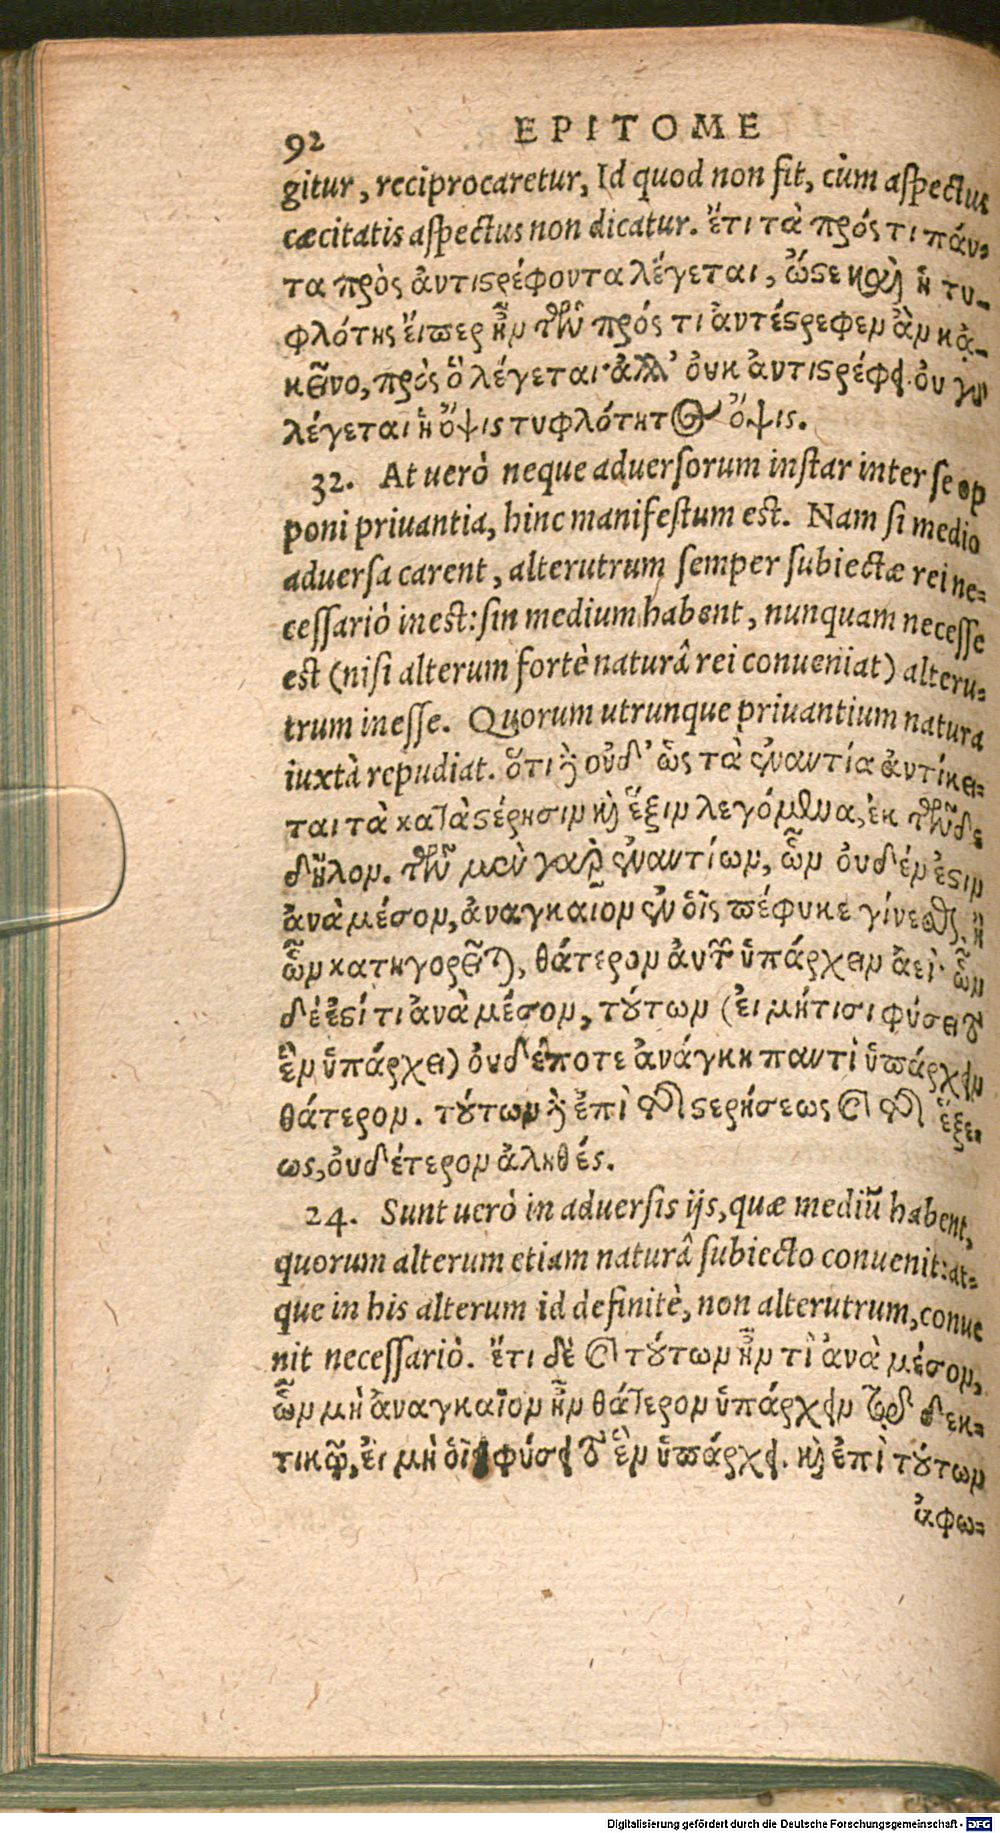 92 EPITOME
gitur, reciprocaretur, Id quod non fit, cùm aspectus
cæcitatis aspectus non dicatur. ἔτι τὰ πρός τι πάν-
τα πρὸς ἀντιςρέφοντα λέγεται, ὥςε καὶ ἡ τυ-
φλότης εἴπερ ἦν τῶν πρός τι ἀντέςρεφεν ἂν κἀ-
κεῖνο, πρὸς ὃ λέγεται· ἀλλ’ οὐκ ἀντιςρέφει. οὐ γὰρ
λέγεται ἡ ὄψις τυφλότητος ὄψις.
32. At uerò neque aduersorum instar inter se op
poni priuantia, hinc manifestum est. Nam si medio
aduersa carent, alterutrum semper subiectæ rei ne-
cessariò inest: sin medium habent, nunquam necesse
est (nisi alterum fortè naturâ rei conueniat) alteru-
trum inesse. Quorum utrunque priuantium natura
iuxtà repudiat. ὅτι δὲ οὐδ’ ὡς τὰ ἐναντία ἀντίκει-
ται τὰ κατὰ ςέρησιν καὶ ἕξιν λεγόμενα, ἐκ τῶνδε
δῆλον. τῶν μὲν γὰρ ἐναντίων, ὧν οὐδέν ἐςιν
ἀνὰ μέσον, ἀναγκαῖον ἐν οἷς πέφυκε γίνεσθαι, ἢ
ὧν κατηγορεῖται, θάτερον αὐτῶν ὑπάρχειν ἀεὶ· ὧν
δέ ἐςί τι ἀνὰ μέσον, τούτων (εἰ μήτισι φύσει τὸ
ἓν ὑπάρχει) οὐδέποτε ἀνάγκη παντὶ ὑπάρχειν
θάτερον. τούτων δὲ ἐπὶ τῆς ςερήσεως καὶ τῆς ἕξε-
ως, οὐδέτερον ἀληθές.
24. Sunt uerò in aduersis ijs, quæ mediũ habent,
quorum alterum etiam naturâ subiecto conuenit: at-
que in his alterum id definitè, non alterutrum, conue
nit necessariò. ἔτι δὲ καὶ τούτων ἦν τὶ ἀνὰ μέσον,
ὧν μὴ ἀναγκαῖον ἦν θάτερον ὑπάρχειν τῷ δεκ-
τικῷ, εἰ μὴ οἷς φύσει τὸ ἓν ὑπάρχει. καὶ ἐπὶ τούτων
ἀφω-
Digitalisierung gefördert durch die Deutsche Forschungsgemeinschaft - DFG